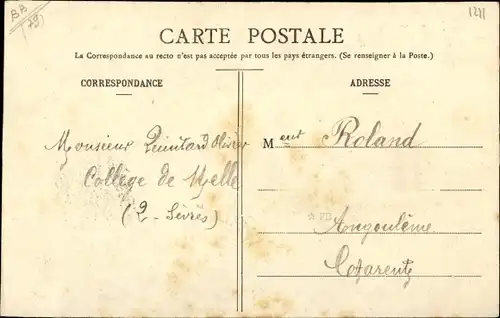 BB
(79)
1211
CARTE POSTALE
La Correspondance au recto n'est pas acceptée par tous les pays étrangers. (Se renseigner à la Poste.)
CORRESPONDANCE
Monsieur Quintard Olivier
Collège de Melle
(2-Sèvres)
ADRESSE
M eur Roland
Angoulême
Charente